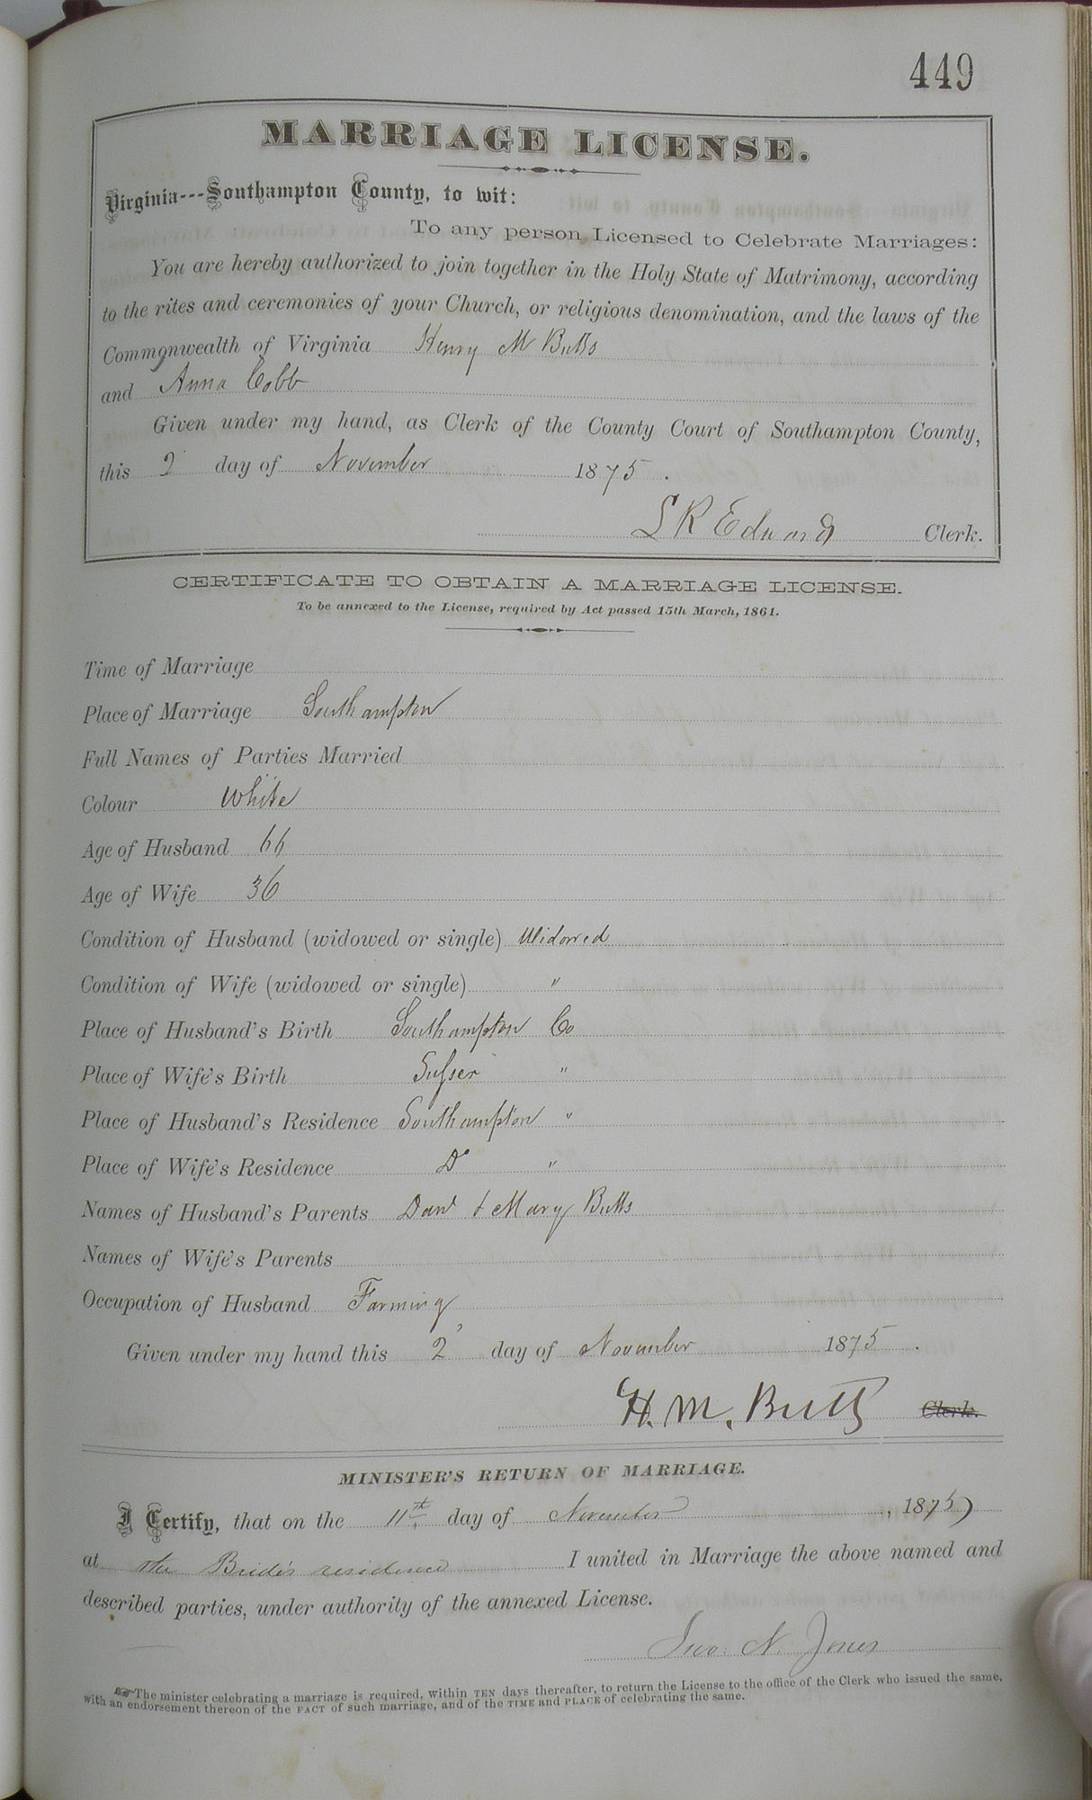 449
MARRIAGE LICENSE.
Virginia---Southampton County, to wit:
To any person Licensed to Celebrate Marriages:
You are hereby authorized to join together in the Holy State of Matrimony, according
to the rites and ceremonies of your Church, or religious denomination, and the laws of the
Commonwealth of Virginia Henry M Butts
and Anna Cobb
Given under my hand, as Clerk of the County Court of Southampton County,
this 2 day of November 1875.
L R Edwards Clerk.
CERTIFICATE TO OBTAIN A MARRIAGE LICENSE.
To be annexed to the License, required by Act passed 15th March, 1861.
Time of Marriage
Place of Marriage Southampton
Full Names of Parties Married
Colour White
Age of Husband 66
Age of Wife 36
Condition of Husband (widowed or single) Widowed
Condition of Wife (widowed or single) "
Place of Husband's Birth Southampton Co
Place of Wife's Birth Sussex "
Place of Husband's Residence Southampton "
Place of Wife's Residence Do "
Names of Husband's Parents Danl & Mary Butts
Names of Wife's Parents
Occupation of Husband Farming
Given under my hand this 2 day of November 1875.
H. M. Butts Clerk.
MINISTER'S RETURN OF MARRIAGE.
I Certify, that on the 11th day of November, 1875)
at the Bride's residence I united in Marriage the above named and
described parties, under authority of the annexed License.
Jno. N. Jones
The minister celebrating a marriage is required, within TEN days thereafter, to return the License to the office of the Clerk who issued the same,
with an endorsement thereon of the FACT of such marriage, and of the TIME and PLACE of celebrating the same.